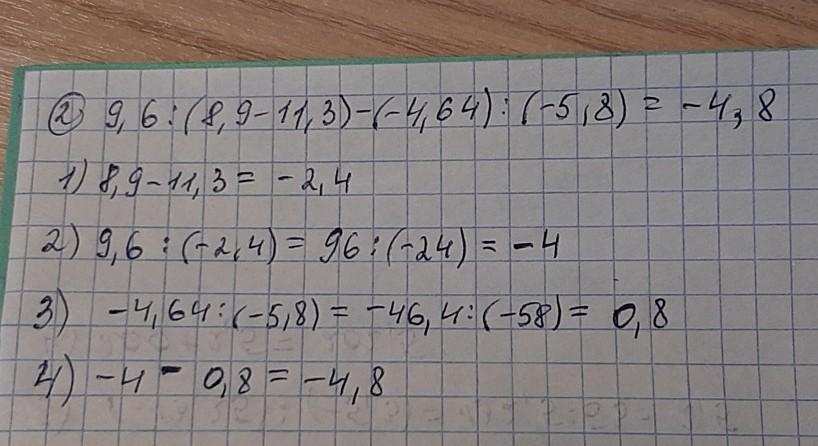 ② 9,6:(8,9-11,3)-(-4,64):(-5,8) = -4,8
1) 8,9-11,3 = -2,4
2) 9,6 : (-2,4) = 96 : (-24) = -4
3) -4,64:(-5,8) = -46,4:(-58) = 0,8
4) -4 - 0,8 = -4,8